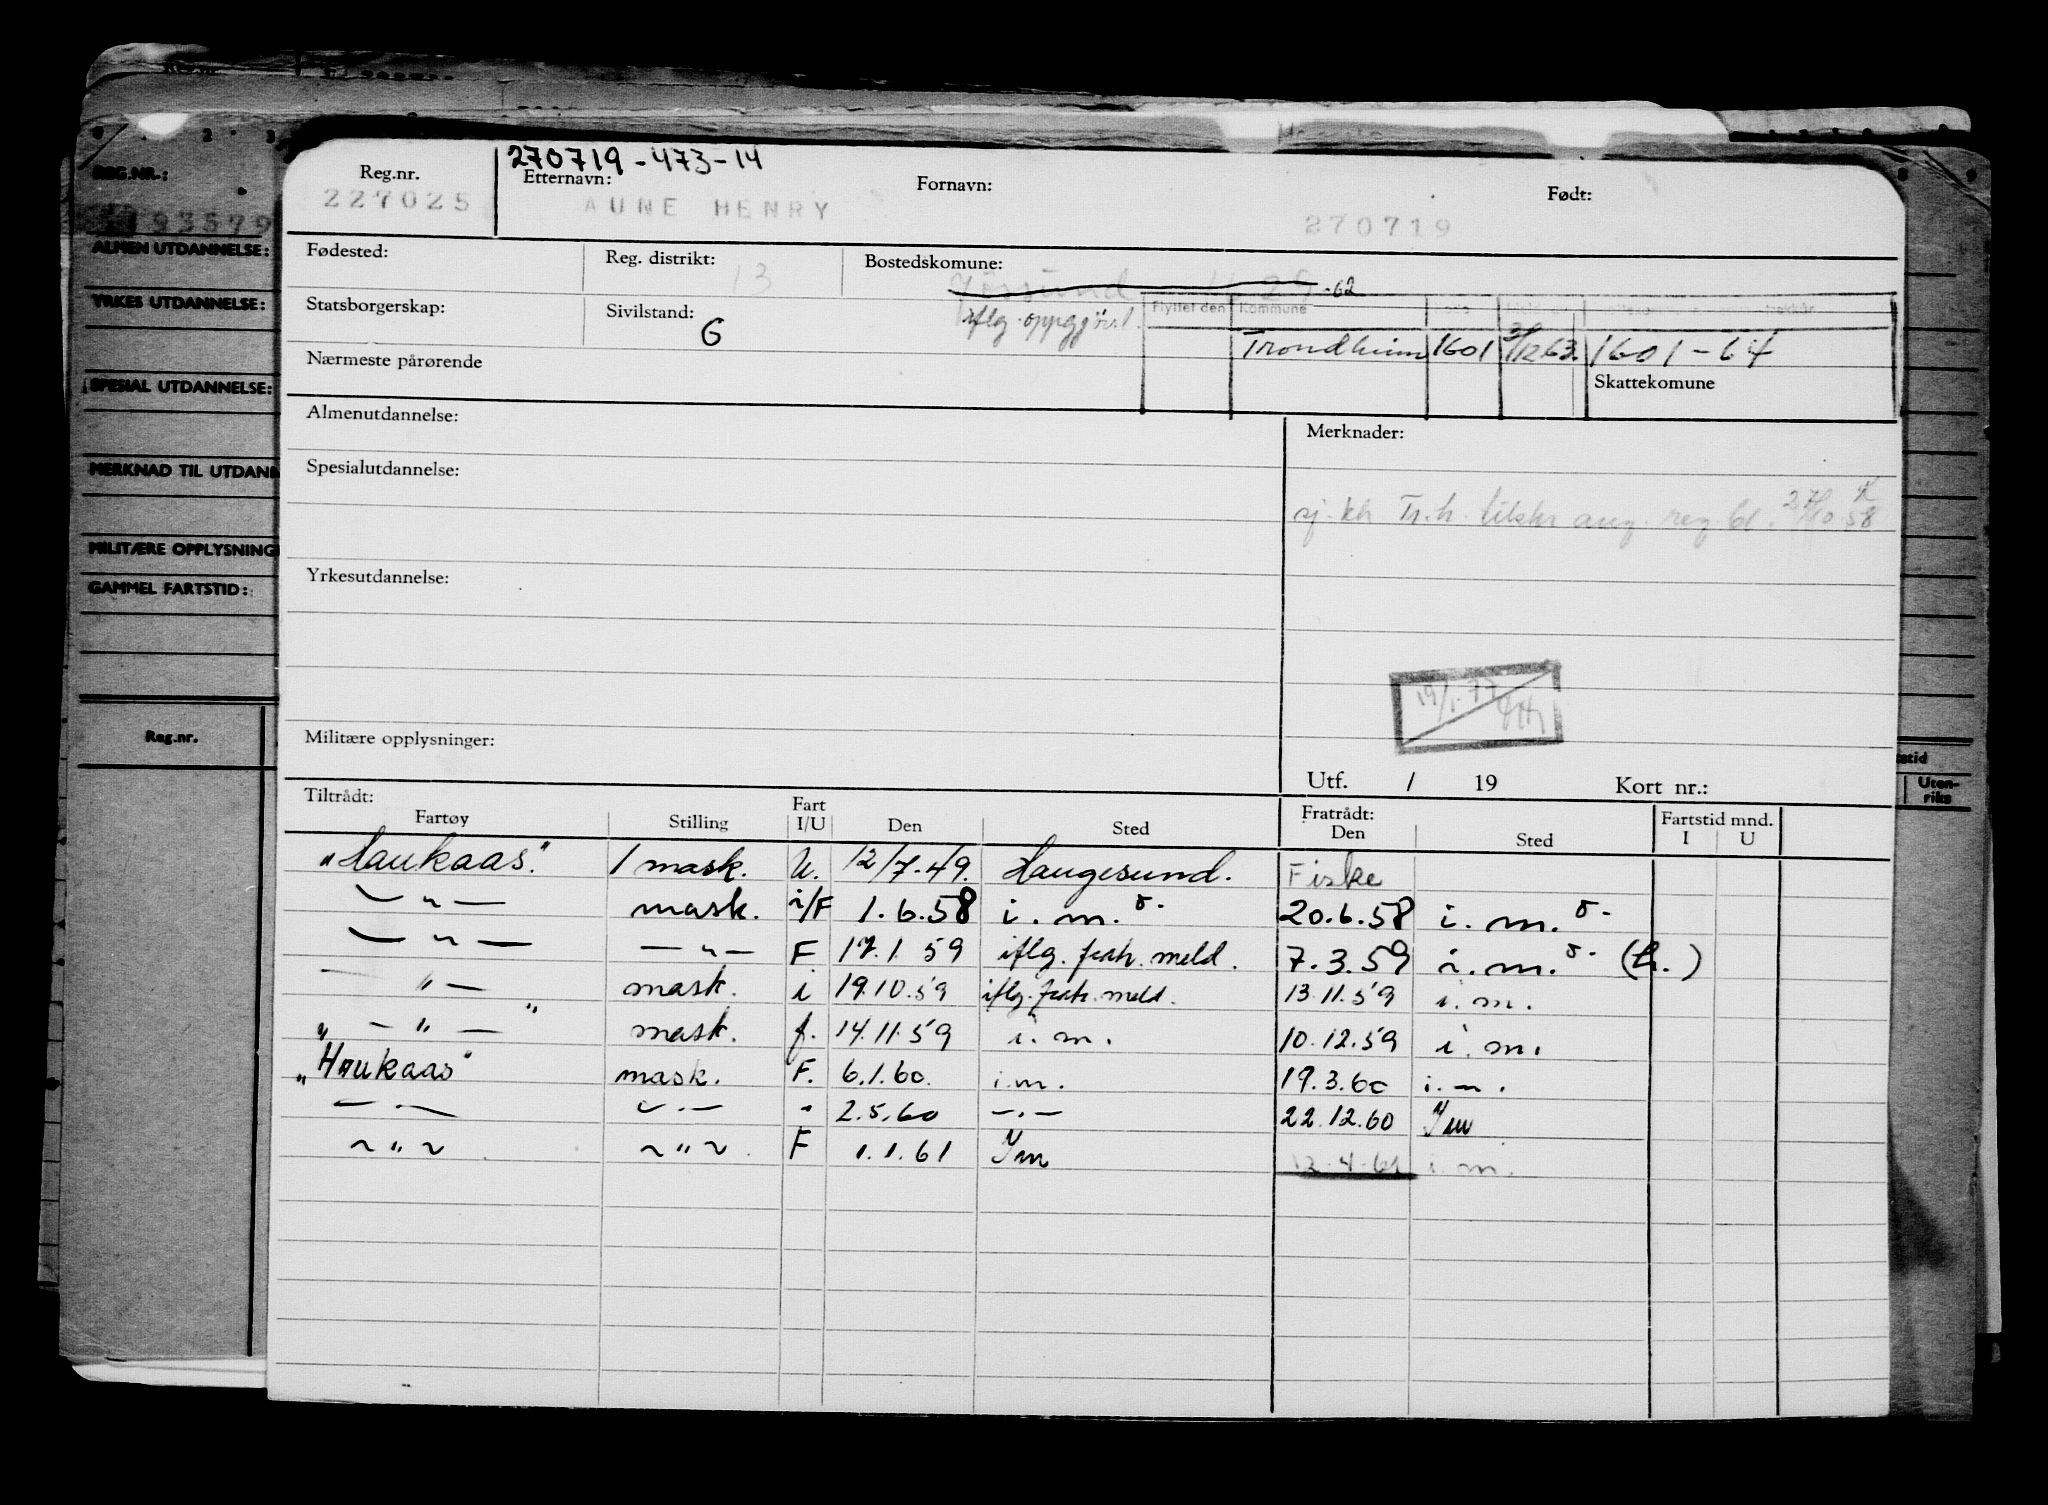 270719-473-14
Reg.nr. Etternavn: Fornavn: Født:
227025 AUNE HENRY 270719
Fødested: Reg. distrikt: 13 Bostedskomune:
-62
Statsborgerskap: Sivilstand: G iflg. oppgjør Flyttet den Kommune
Trondheim 1601 1601-64
Nærmeste pårørende Skattekomune
Almenutdannelse: Merknader:
Spesialutdannelse:
sj. kh Tr.h. tilskr ang. reg bl. 58
Yrkesutdannelse:
19/1-77
Militære opplysninger:
Utf. / 19 Kort nr.:
Tiltrådt: Fart Fratrådt: Fartstid mnd.
Fartøy Stilling I/U Den Sted Den Sted I U
"Haukaas". 1 mask. U. 12/7.49. Haugesund. Fiske
— " — mask. i/F 1.6.58 i.m.o. 20.6.58 i.m.o.
— " — — " — F 17.1.59 iflg. fratr. meld. 7.3.59 i.m.o.
" — mask. i 19.10.59 iflg. fratr. meld. 13.11.59 i.m.
" — " — " mask. f. 14.11.59 i.m. 10.12.59 i.m.
"Haukaas" mask. F. 6.1.60. i.m. 19.3.60 i.m.
— . — — . — " 2.5.60 — . — 22.12.60 Im
~ " ~ ~ " ~ F 1.1.61 Im 12.4.61 i.m.
REG.NR.:
93579
ALMEN UTDANNELSE:
YRKES UTDANNELSE:
SPESIAL UTDANNELSE:
MERKNAD TIL UTDANN
MILITÆRE OPPLYSNING
GAMMEL FARTSTID:
Reg.nr.
Uten-
riks